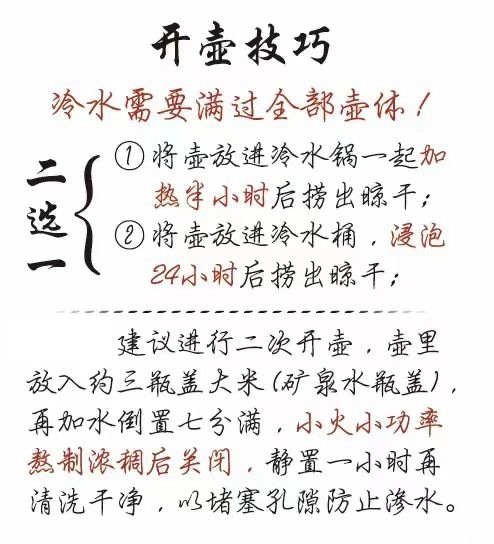 开壶技巧
冷水需要满过全部壶体！
二选一
①将壶放进冷水锅一起加
热半小时后捞出晾干；
②将壶放进冷水桶，浸泡
24小时后捞出晾干；
建议进行二次开壶，壶里
放入约三瓶盖大米(矿泉水瓶盖)，
再加水倒置七分满，小火小功率
熬制浓稠后关闭，静置一小时再
清洗干净，以堵塞孔隙防止渗水。